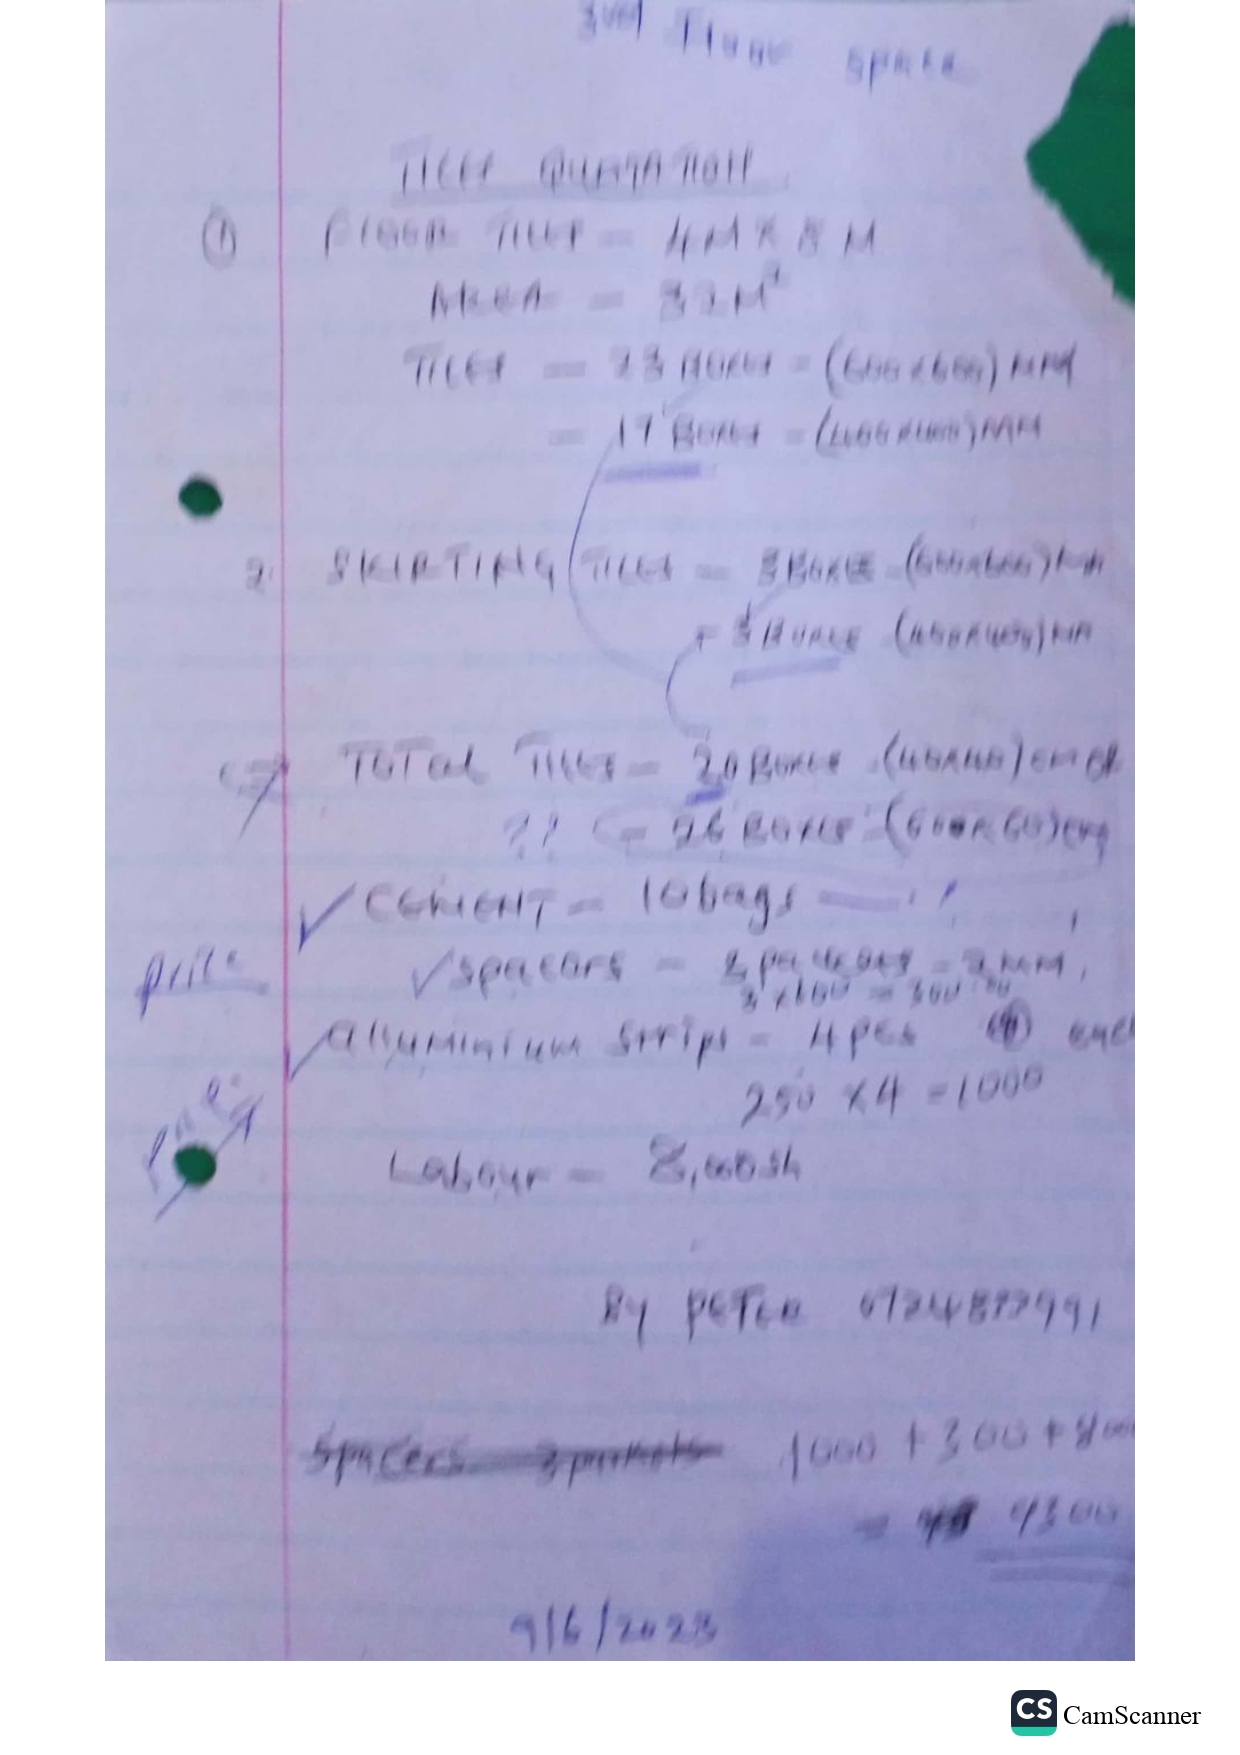 3rd Floor space
TILES QUOTATION
① FLOOR TILES = 4M X 8M
AREA = 32M²
TILES = 23 BOXES = (600x600)MM
= 17 BOXES = (400x400)MM
2. SKIRTING TILES = 3 BOXES = (600x600)MM
= 3 BOXES (400x400)MM
TOTAL TILES = 20 BOXES (40x40)CM OR
?? = 26 BOXES = (60x60)CM
CEMENT = 10 bags ?
price
spacers = 3 packets = 2MM
3 x 100 = 300
alluminium strips = 4 PCS @ each
250 x 4 = 1000
Labour = 8,000sh
BY PETER
Spacers 3 packets 1000 + 300 + 800
= 9300
9/6/2023
CS CamScanner